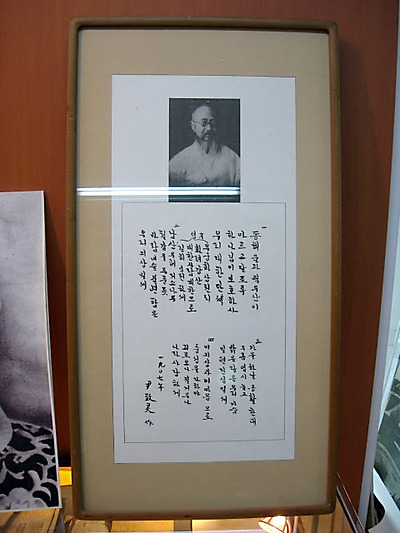 一
동해물과 백두산이
마르고 달토록
하나님이 보호하사
우리 대한만세
무궁화 삼천리
화려강산
대한사람 대한으로
길이 보전하세
二
남산우에 저 소나무
철갑을 두른듯
바람이슬 불변함은
우리 기상일세
三
가을하날 공활한데
구름업시 높고
밝은달은 우리가슴
일편단심일세
四
이기상과 이마음으로
님군을 섬기며
괴로오나 질거우나
나라사랑하세
一九〇七年
尹致昊 作